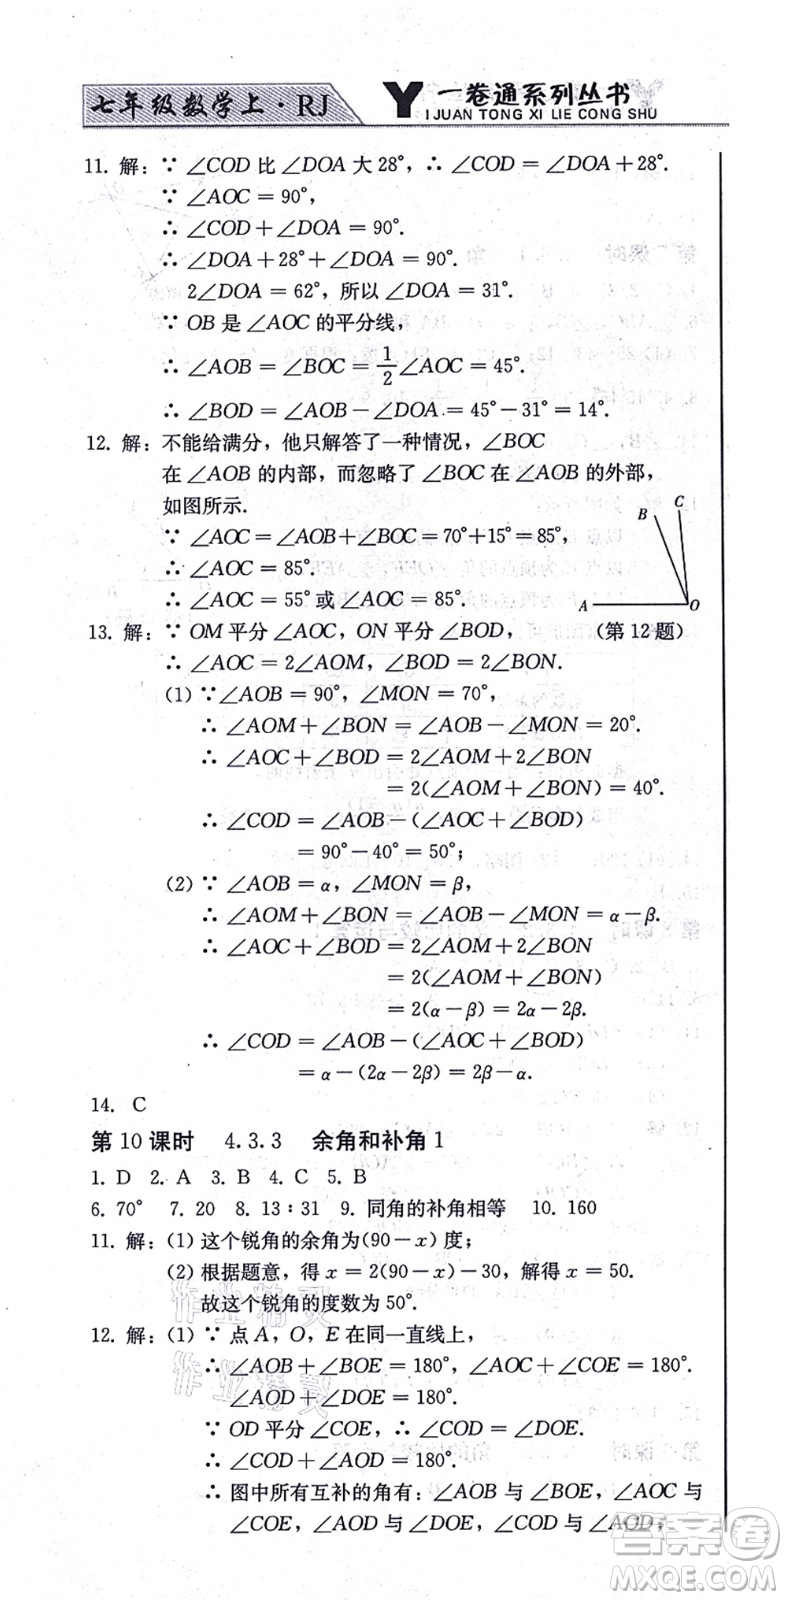 七年级数学上·RJ
一卷通系列丛书
YI JUAN TONG XI LIE CONG SHU
11. 解：∵ ∠COD 比 ∠DOA 大 28°，∴ ∠COD = ∠DOA + 28°.
∵ ∠AOC = 90°，
∴ ∠COD + ∠DOA = 90°.
∴ ∠DOA + 28° + ∠DOA = 90°.
2∠DOA = 62°，所以 ∠DOA = 31°.
∵ OB 是 ∠AOC 的平分线，
∴ ∠AOB = ∠BOC = 1/2 ∠AOC = 45°.
∴ ∠BOD = ∠AOB − ∠DOA = 45° − 31° = 14°.
12. 解：不能给满分，他只解答了一种情况，∠BOC
在 ∠AOB 的内部，而忽略了 ∠BOC 在 ∠AOB 的外部，
如图所示.
∵ ∠AOC = ∠AOB + ∠BOC = 70° + 15° = 85°，
∴ ∠AOC = 85°.
∴ ∠AOC = 55° 或 ∠AOC = 85°.
B C
A O
(第 12 题)
13. 解：∵ OM 平分 ∠AOC，ON 平分 ∠BOD，
∴ ∠AOC = 2∠AOM，∠BOD = 2∠BON.
(1) ∵ ∠AOB = 90°，∠MON = 70°，
∴ ∠AOM + ∠BON = ∠AOB − ∠MON = 20°.
∴ ∠AOC + ∠BOD = 2∠AOM + 2∠BON
= 2(∠AOM + ∠BON) = 40°.
∴ ∠COD = ∠AOB − (∠AOC + ∠BOD)
= 90° − 40° = 50°；
(2) ∵ ∠AOB = α，∠MON = β，
∴ ∠AOM + ∠BON = ∠AOB − ∠MON = α − β.
∴ ∠AOC + ∠BOD = 2∠AOM + 2∠BON
= 2(∠AOM + ∠BON)
= 2(α − β) = 2α − 2β.
∴ ∠COD = ∠AOB − (∠AOC + ∠BOD)
= α − (2α − 2β) = 2β − α.
14. C
第 10 课时 4.3.3 余角和补角 1
1. D 2. A 3. B 4. C 5. B
6. 70° 7. 20 8. 13∶31 9. 同角的补角相等 10. 160
11. 解：(1) 这个锐角的余角为(90 − x) 度；
(2) 根据题意，得 x = 2(90 − x) − 30，解得 x = 50.
故这个锐角的度数为 50°.
12. 解：(1) ∵ 点 A，O，E 在同一直线上，
∴ ∠AOB + ∠BOE = 180°，∠AOC + ∠COE = 180°.
∠AOD + ∠DOE = 180°.
∵ OD 平分 ∠COE，∴ ∠COD = ∠DOE.
∴ ∠COD + ∠AOD = 180°.
∴ 图中所有互补的角有：∠AOB 与 ∠BOE，∠AOC 与
∠COE，∠AOD 与 ∠DOE，∠COD 与 ∠AOD；
作业精灵
作业精灵
答案圈
MXQE.COM